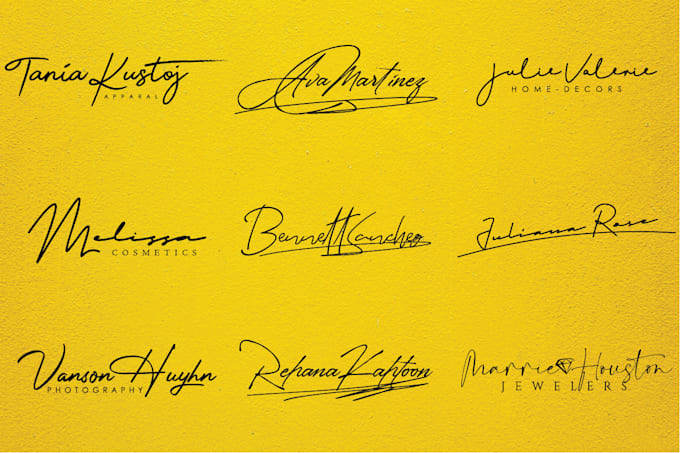 Tania Kustoj
APPARAL
Ava Martinez
Julie Valerie
HOME-DECORS
Melissa
COSMETICS
Bennett Sancheo
Juliana Rose
Vanson Huyhn
PHOTOGRAPHY
Rehana Kahtoon
Marrie Houston
JEWELERS